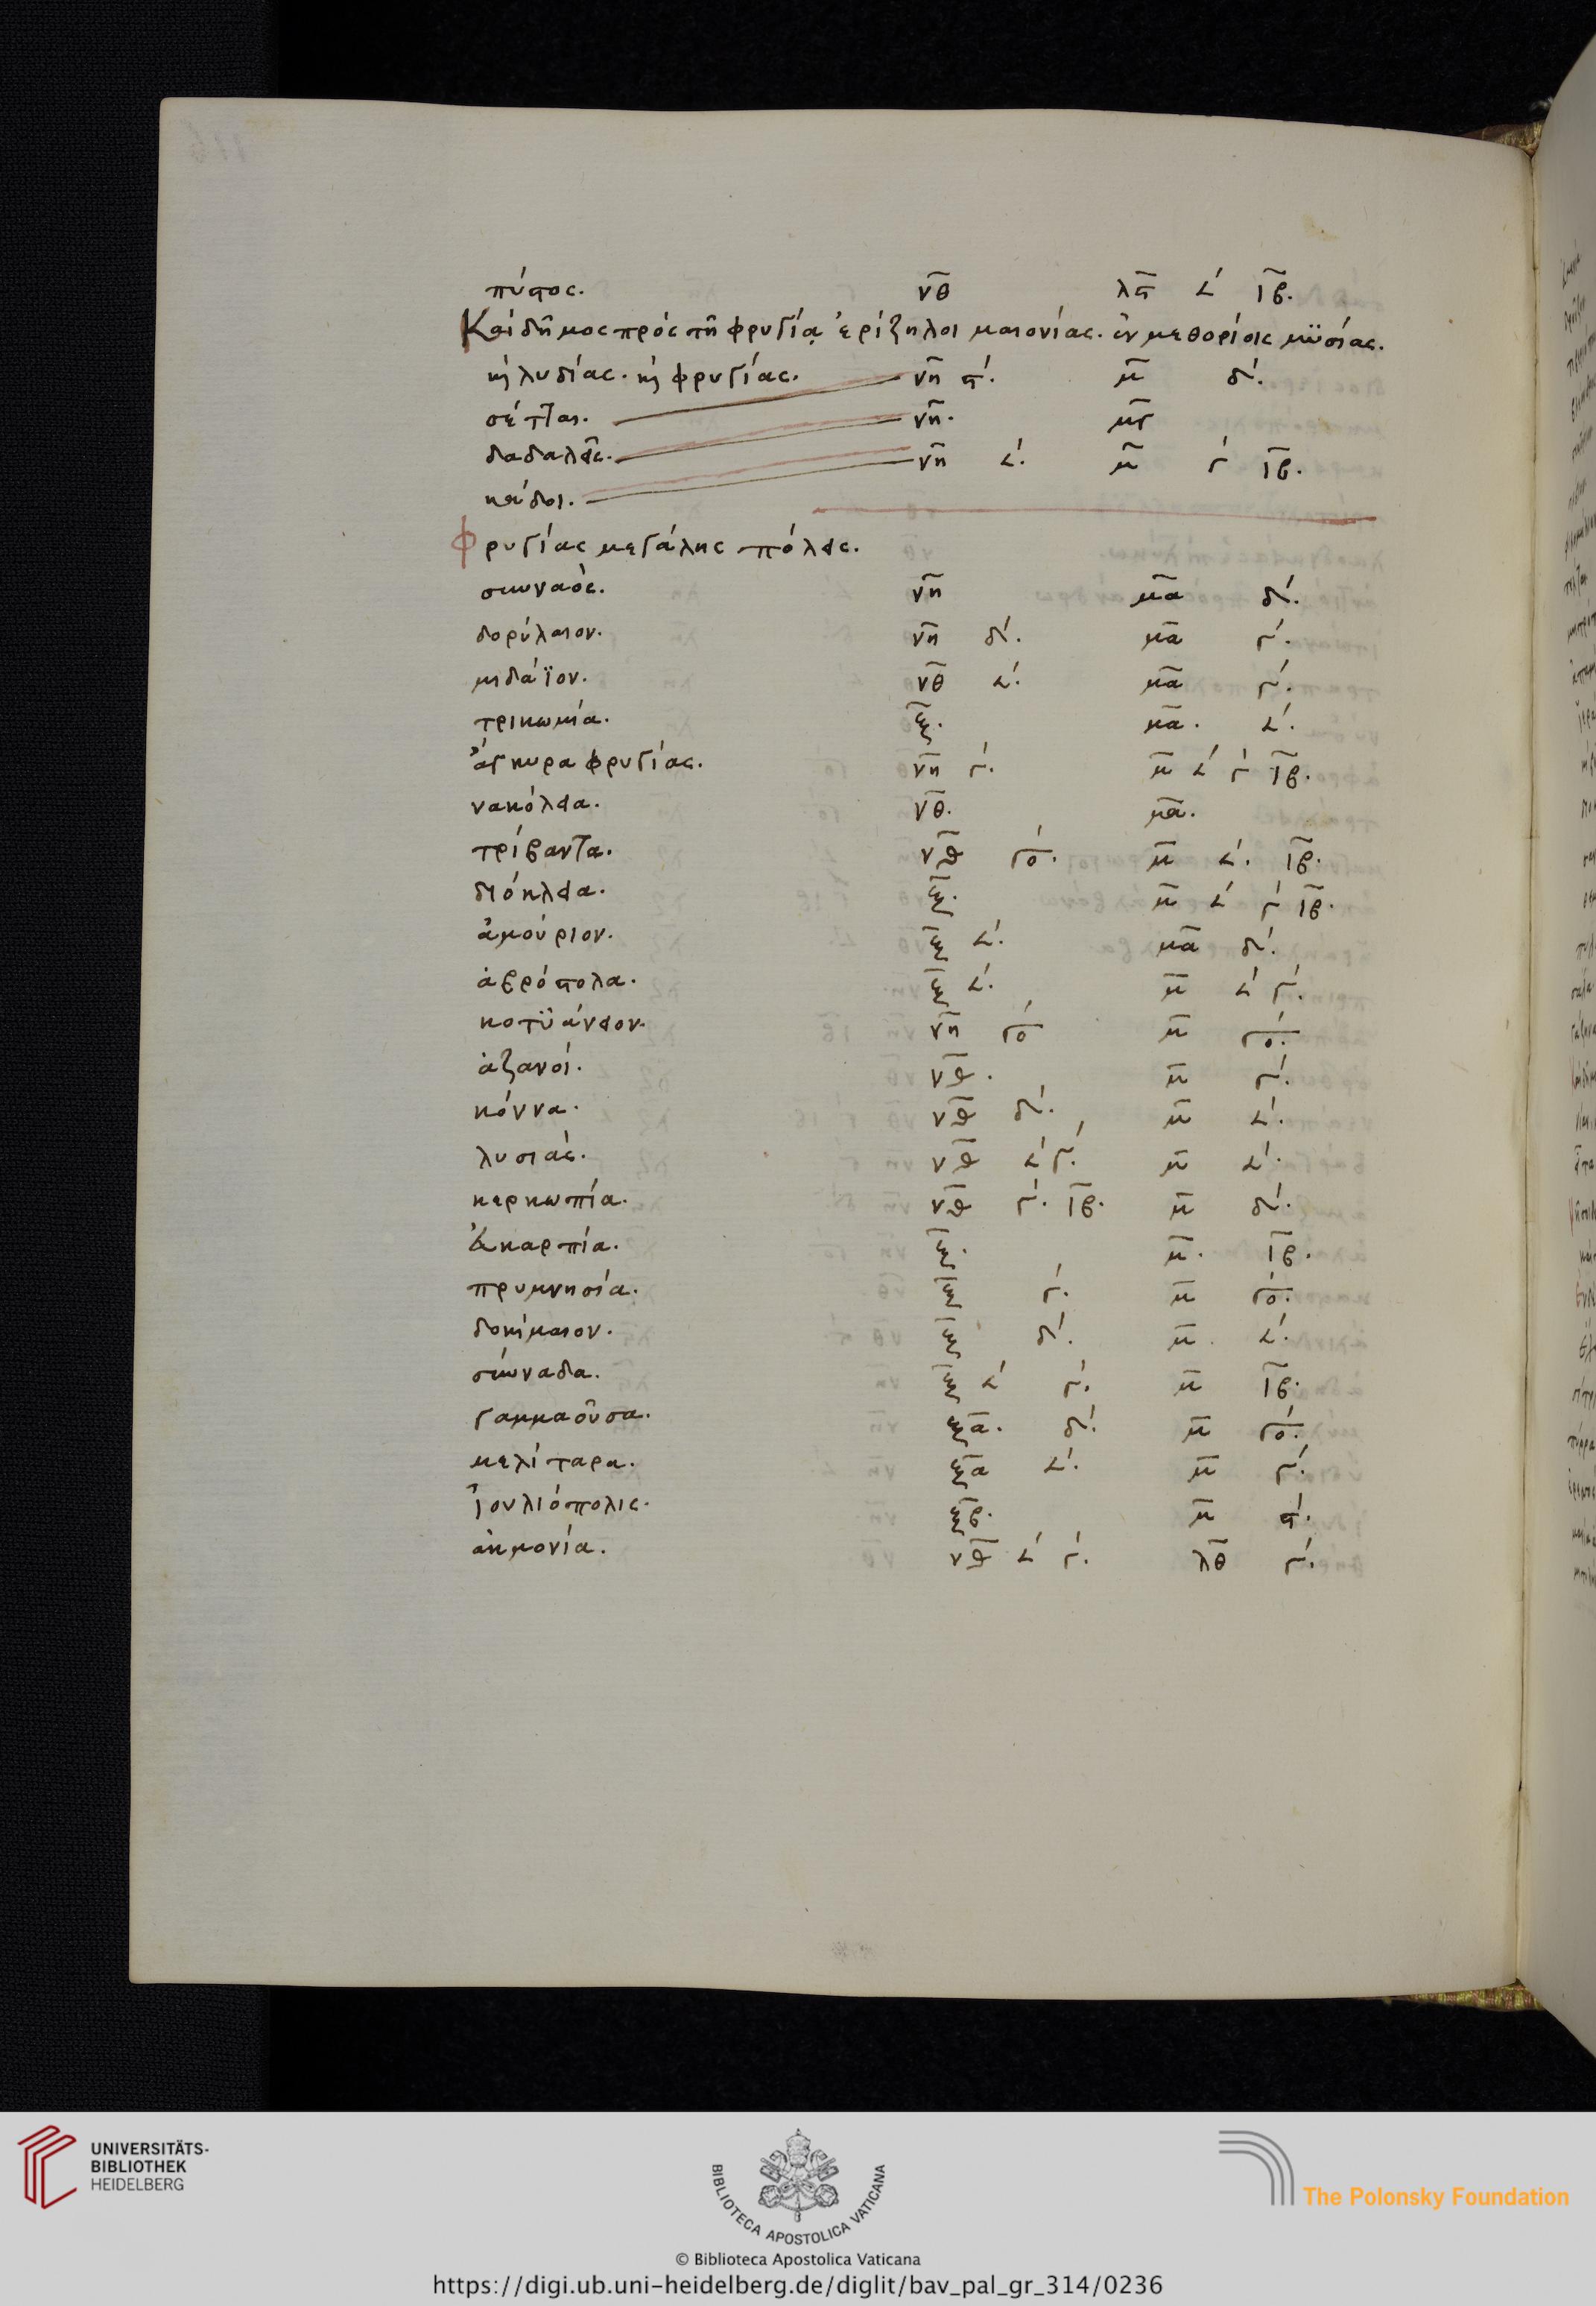 πύϛος. νθ λϛ ∠´ ιβ.
Καὶ δῆμος πρὸς τῆ φρυγίᾳ ἐρίζηλοι μαιονίας. ἐν μεθορίοις μϋσίας.
καὶ λυδίας. καὶ φρυγίας. νη ϛ´. μ δ´.
σέτται. νη. μγ
δαδαλεῖς. νη ∠´. μ γ´ ιβ.
κάδοι.
Φρυγίας μεγάλης πόλεις.
συναὸς. νη μα δ´.
δορύλαιον. νη δ´. μα γ´.
μιδάϊον. νθ ∠´. μα γ´.
τρικωμία. ξ. μα. ∠´.
ἄγκυρα φρυγίας. νη γ´. μ ∠´ γ´ ιβ.
νακόλεια. νθ. μα.
τρίβαντα. νθ γο´. μ ∠´. ιβ.
διόκλεια. ξ. μ ∠´ γ´ ιβ.
ἀμούριον. ξ ∠´. μα δ´.
ἀβρόστολα. ξ ∠´. μ ∠´ γ´.
κοτϋάειον. νη γο μ γο´.
ἀζανοί. νθ. μ γ´.
κόννα. νθ δ´. μ ∠´.
λυσιάς. νθ ∠´ γ´. μ ∠´.
κερκωπία. νθ γ´. ιβ. μ δ´.
ἐυκαρπία. ξ. μ. ιβ.
πρυμνησία. ξ γ´. μ γο´.
δοκίμαιον. ξ δ´. μ ∠´.
σύναδα. ξ ∠´ γ´. μ ιβ.
γαμμαοῦσα. ξα. δ´. μ γο´.
μελίταρα. ξα ∠´. μ γ´.
ἰουλιόπολις. ξβ. μ ϛ´.
ἀκμονία. νθ ∠´ γ´. λθ γ´.
UNIVERSITÄTS-
BIBLIOTHEK
HEIDELBERG
BIBLIOTECA APOSTOLICA VATICANA
The Polonsky Foundation
© Biblioteca Apostolica Vaticana
https://digi.ub.uni-heidelberg.de/diglit/bav_pal_gr_314/0236